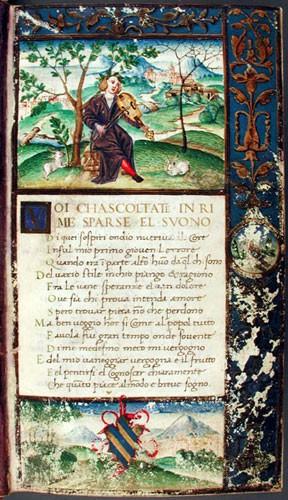 VOI CHASCOLTATE IN RI
ME SPARSE EL SVONO
Di quei sospiri ondio nutriva il core
In sul mio primo giovenil errore
Quando era in parte altro huō da ql ch sono
Del vario stile in chio piango & ragiono
Fra le vane speranze el van dolore
Ove sia chi prova intenda amore
Spero trovar pieta nō che perdono
Ma ben veggio hor si come al popol tutto
Favola fui gran tempo onde sovente
Di me medesmo meco mi vergogno
E del mio vaneggiar vergogna e il frutto
E el pentirsi el cognoscer chiaramente
Che quāto piace al mōdo e breve sogno.